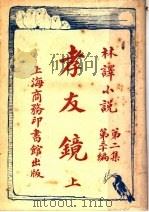 林譯小說
第二集
第三十編
孝友鏡
上
上海商務印書館出版